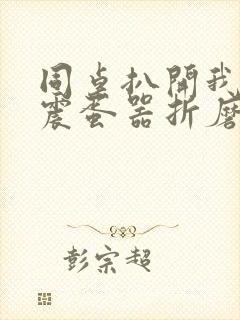 同桌扒開我
震蛋器折磨
彭宗超